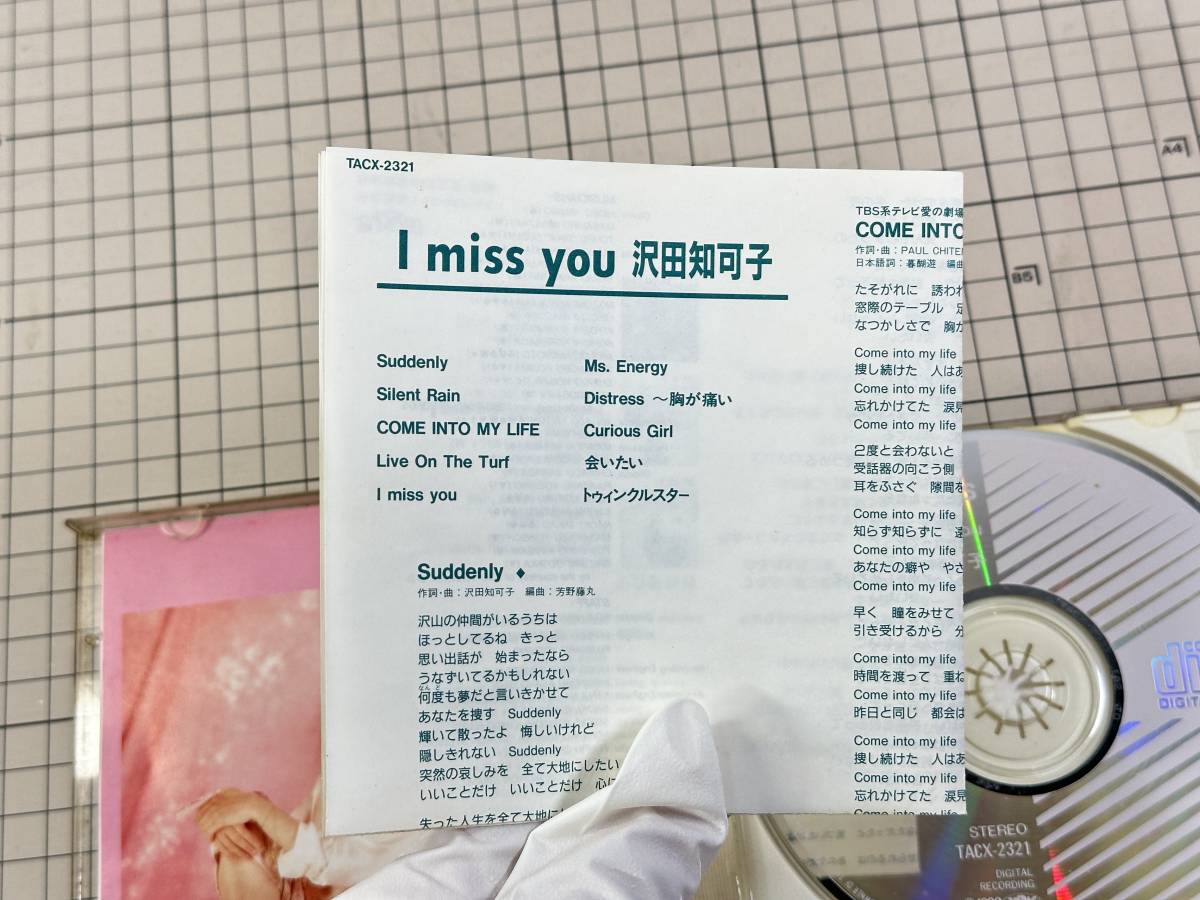 TACX-2321
I miss you 沢田知可子
Suddenly
Silent Rain
COME INTO MY LIFE
Live On The Turf
I miss you
Ms. Energy
Distress 〜胸が痛い
Curious Girl
会いたい
トゥインクルスター
Suddenly ♦
作詞・曲：沢田知可子 編曲：芳野藤丸
沢山の仲間がいるうちは
ほっとしてるね きっと
思い出話が 始まったなら
うなずいてるかもしれない
何度も夢だと言いきかせて
あなたを捜す Suddenly
輝いて散ったよ 悔しいけれど
隠しきれない Suddenly
突然の哀しみを 全て大地にしたい
いいことだけ いいことだけ 心に
失った人生を全て大地に
TBS系テレビ愛の劇場
COME INTO
作詞・曲：PAUL CHITEN
日本語詞：暮醐遊 編曲
たそがれに 誘われ
窓際のテーブル
なつかしさで 胸が
Come into my life
捜し続けた 人はあ
Come into my life
忘れかけてた 涙見
Come into my life
2度と会わないと
受話器の向こう側
耳をふさぐ 隙間を
Come into my life
知らず知らずに 遠
Come into my life
あなたの癖や やさ
Come into my life
早く 瞳をみせて
引き受けるから 分
Come into my life
時間を渡って 重ね
Come into my life
昨日と同じ 都会は
Come into my life
捜し続けた 人はあ
Come into my life
忘れかけてた 涙見
Come into my life
A4
B5
STEREO
TACX-2321
DIGITAL
RECORDING